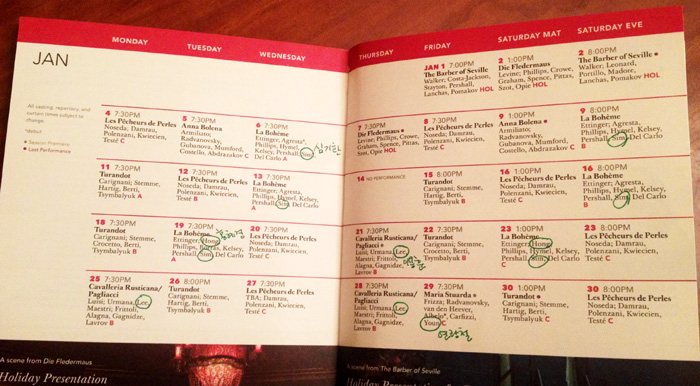 JAN
MONDAY
TUESDAY
WEDNESDAY
All casting, repertory, and
curtain times subject to
change.
*Debut
● Season Premiere
● Last Performance
4 7:30PM
Les Pêcheurs de Perles
Noseda; Damrau,
Polenzani, Kwiecien,
Testé C
5 7:30PM
Anna Bolena
Armiliato;
Radvanovsky,
Gubanova, Mumford,
Costello, Abdrazakov C
6 7:30PM
La Bohème
Ettinger; Agresta*,
Phillips, Hymel, Kelsey,
Pershall, Sim, Del Carlo A
심기환
11 7:30PM
Turandot
Carignani; Stemme,
Hartig, Berti,
Tsymbalyuk A
12 7:30PM
Les Pêcheurs de Perles
Noseda; Damrau,
Polenzani, Kwiecien,
Testé B
13 7:30PM
La Bohème
Ettinger; Agresta,
Phillips, Hymel, Kelsey,
Pershall, Sim, Del Carlo
A
18 7:30PM
Turandot
Carignani; Stemme,
Crocetto, Berti,
Tsymbalyuk B
19 7:30PM
La Bohème
Ettinger; Hong,
Phillips, Kelsey,
Pershall, Sim, Del Carlo
A
20 7:30PM
Les Pêcheurs de Perles
Noseda; Damrau,
Polenzani, Kwiecien,
Testé C
25 7:30PM
Cavalleria Rusticana/
Pagliacci
Luisi; Urmana, Lee,
Maestri; Frittoli,
Alagna, Gagnidze,
Lavrov B
26 8:00PM
Turandot
Carignani; Stemme,
Hartig, Berti,
Tsymbalyuk C
27 7:30PM
Les Pêcheurs de Perles
TBA; Damrau,
Polenzani, Kwiecien,
Testé C
A scene from Die Fledermaus
Holiday Presentation
THURSDAY
FRIDAY
SATURDAY MAT
SATURDAY EVE
JAN 1 7:00PM
The Barber of Seville
Walker; Costa-Jackson,
Stayton, Pershall,
Lanchas, Pomakov HOL
2 1:00PM
Die Fledermaus
Levine; Phillips, Crowe,
Graham, Spence, Pittas,
Szot, Opie HOL
2 8:00PM
The Barber of Seville ●
Walker; Leonard,
Portillo, Madore,
Lanchas, Pomakov HOL
7 7:30PM
Die Fledermaus ●
Levine; Phillips, Crowe,
Graham, Spence, Pittas,
Szot, Opie HOL
8 7:30PM
Les Pêcheurs de Perles
Noseda; Damrau,
Polenzani, Kwiecien,
Testé C
9 1:00PM
Anna Bolena ●
Armiliato;
Radvanovsky,
Gubanova, Mumford,
Costello, Abdrazakov C
9 8:00PM
La Bohème
Ettinger; Agresta,
Phillips, Hymel, Kelsey,
Pershall, Sim, Del Carlo
B
14 NO PERFORMANCE
15 8:00PM
Turandot
Carignani; Stemme,
Hartig, Berti,
Tsymbalyuk B
16 1:00PM
Les Pêcheurs de Perles
Noseda; Damrau,
Polenzani, Kwiecien,
Testé C
16 8:00PM
La Bohème
Ettinger; Agresta,
Phillips, Hymel, Kelsey,
Pershall, Sim, Del Carlo
B
21 7:30PM
Cavalleria Rusticana/
Pagliacci ●
Luisi; Urmana, Lee,
Maestri; Frittoli,
Alagna, Gagnidze,
Lavrov B
22 7:30PM
Turandot
Carignani; Stemme,
Hartig, Berti,
Tsymbalyuk C
23 1:00PM
La Bohème
Ettinger; Hong,
Phillips, Hymel, Kelsey,
Pershall, Sim, Del Carlo
C
23 8:00PM
Les Pêcheurs de Perles
Noseda; Damrau,
Polenzani, Kwiecien,
Testé C
28 7:30PM
Cavalleria Rusticana/
Pagliacci
Luisi; Urmana, Lee,
Maestri; Frittoli,
Alagna, Gagnidze,
Lavrov B
29 7:30PM
Maria Stuarda ●
Frizza; Radvanovsky,
van den Heever,
Albelo*, Carfizzi,
Youn C
연광철
30 1:00PM
Turandot ●
Carignani; Stemme,
Hartig, Berti,
Tsymbalyuk C
30 8:00PM
Les Pêcheurs de Perles
Noseda; Damrau,
Polenzani, Kwiecien,
Testé C
A scene from The Barber of Seville